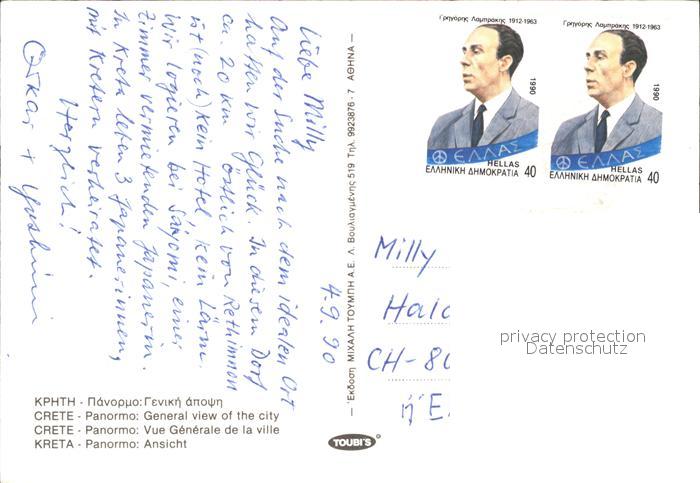 4.9.90
Liebe Milly
Auf der Suche nach dem idealen Ort
hatten wir Glück. In diesem Dorf
ca. 20 km östlich von Rethimnon
ist (noch) kein Hotel, kein Lärm.
Wir logieren bei Sayomi, einer
Zimmer vermietenden Japanerin.
In Kreta leben 3 Japanerinnen,
mit Kretern verheiratet.
Herzlich!
Oskar +
ΚΡΗΤΗ - Πάνορμο: Γενική άποψη
CRETE - Panormo: General view of the city
CRETE - Panormo: Vue Générale de la ville
KRETA - Panormo: Ansicht
— Έκδοση ΜΙΧΑΛΗ ΤΟΥΜΠΗ Α.Ε. Λ. Βουλιαγμένης 519 Τηλ. 9923876 - 7 ΑΘΗΝΑ —
TOUBI'S
Γρηγόρης Λαμπράκης 1912-1963
1990
ΕΛΛΑΣ
HELLAS
ΕΛΛΗΝΙΚΗ ΔΗΜΟΚΡΑΤΙΑ 40
Γρηγόρης Λαμπράκης 1912-1963
1990
ΕΛΛΑΣ
HELLAS
ΕΛΛΗΝΙΚΗ ΔΗΜΟΚΡΑΤΙΑ 40
Milly
CH-80
privacy protection
Datenschutz